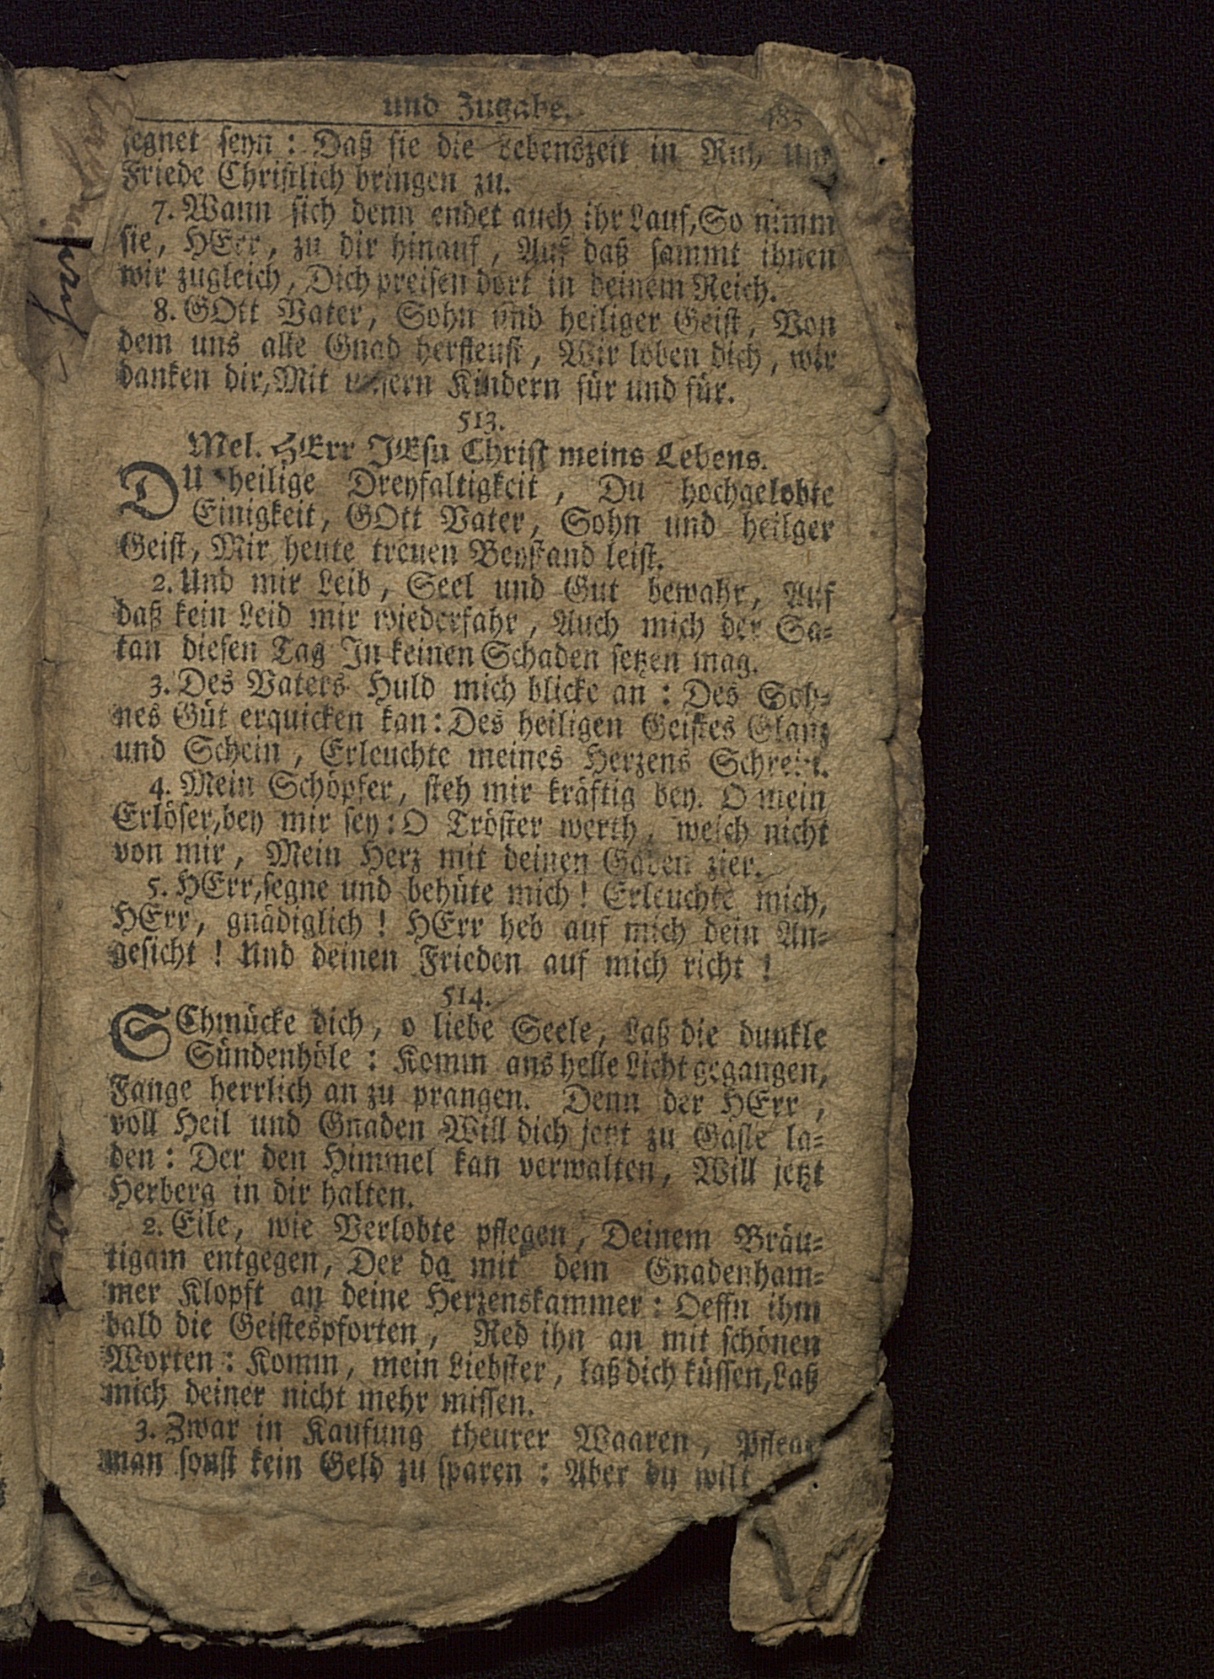 und Zugabe. 485
segnet seyn : Daß sie die Lebenszeit in Ruh und
Friede Christlich bringen zu.
7. Wann sich denn endet auch ihr Lauf, So nimm
sie, HErr, zu dir hinauf, Auf daß sammt ihnen
wir zugleich, Dich preisen dort in deinem Reich.
8. GOtt Vater, Sohn und heiliger Geist, Von
dem uns alle Gnad herfleust, Wir loben dich, wir
danken dir, Mit unsern Kindern für und für.
513.
Mel. HErr JEsu Christ meins Lebens.
DU heilige Dreyfaltigkeit, Du hochgelobte
Einigkeit, GOtt Vater, Sohn und heilger
Geist, Mir heute treuen Beystand leist.
2. Und mir Leib, Seel und Gut bewahr, Auf
daß kein Leid mir wiederfahr, Auch mich der Sa-
tan diesen Tag In keinen Schaden setzen mag.
3. Des Vaters Huld mich blicke an : Des Soh-
nes Güt erquicken kan: Des heiligen Geistes Glanz
und Schein, Erleuchte meines Herzens Schrein.
4. Mein Schöpfer, steh mir kräftig bey. O mein
Erlöser, bey mir sey: O Tröster werth, weich nicht
von mir, Mein Herz mit deinen Gaben zier.
5. HErr, segne und behüte mich! Erleuchte mich,
HErr, gnädiglich! HErr heb auf mich dein An-
gesicht! Und deinen Frieden auf mich richt!
514.
SChmücke dich, o liebe Seele, Laß die dunkle
Sündenhöle : Komm ans helle Licht gegangen,
Fange herrlich an zu prangen. Denn der HErr,
voll Heil und Gnaden Will dich jetzt zu Gäste la-
den: Der den Himmel kan verwalten, Will jetzt
Herberg in dir halten.
2. Eile, wie Verlobte pflegen, Deinem Bräu-
tigam entgegen, Der da mit dem Gnadenham-
mer Klopft an deine Herzenskammer: Oeffn ihm
bald die Geistespforten, Red ihn an mit schönen
Worten: Komm, mein Liebster, laß dich küssen, Laß
mich deiner nicht mehr missen.
3. Zwar in Kaufung theurer Waaren, Pflegt
man sonst kein Geld zu sparen: Aber du wilt